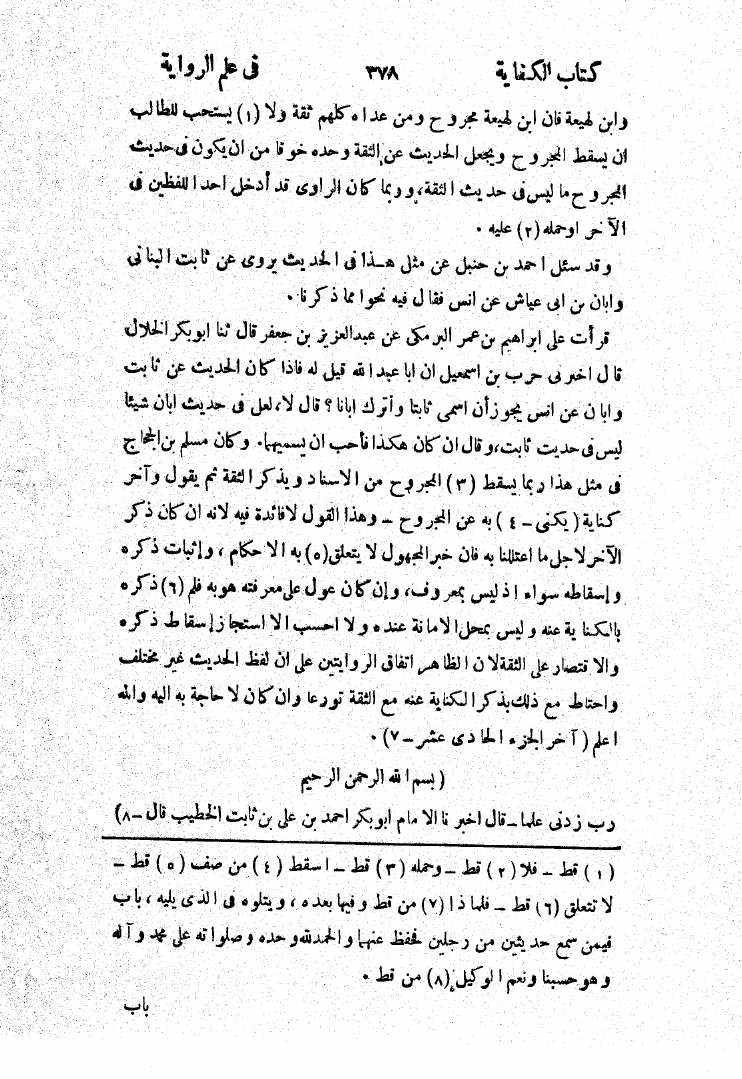 كتاب الكفاية ٣٧٨ فى علم الرواية
وابن لهيعة فان ابن لهيعة مجروح ومن عداه كلهم ثقة ولا (١) يستحب للطالب
ان يسقط المجروح ويجعل الحديث عن الثقة وحده خوفا من ان يكون فى حديث
المجروح ما ليس فى حديث الثقة، وربما كان الراوى قد أدخل احد اللفظين فى
الآخر اوحمله (٢) عليه .
وقد سئل احمد بن حنبل عن مثل هذا فى الحديث يروى عن ثابت البنانى
وابان بن ابى عياش عن انس فقال فيه نحوا مما ذكرنا .
قرأت على ابراهيم بن عمر البرمكى عن عبدالعزيز بن جعفر قال ثنا ابوبكر الخلال
قال اخبرنى حرب بن اسمعيل ان ابا عبد الله قيل له فاذا كان الحديث عن ثابت
وابان عن انس يجوز أن اسمى ثابتا وأترك ابانا ؟ قال لا، لعل فى حديث ابان شيئا
ليس فى حديث ثابت، وقال ان كان هكذا فأحب ان يسميهما. وكان مسلم بن الحجاج
فى مثل هذا ربما يسقط (٣) المجروح من الاسناد ويذكر الثقة ثم يقول وآخر
كناية (يكنى - ٤) به عن المجروح - وهذا القول لا فائدة فيه لانه ان كان ذكر
الآخر لاجل ما اعتللنا به فان خبر المجهول لا يتعلق (٥) به الاحكام ، وإثبات ذكره
وإسقاطه سواء اذ ليس بمعروف، وإن كان عول على معرفته هو به فلم (٦) ذكره
بالكناية عنه وليس بمحل الامانة عنده ولا احسب الا استجاز إسقاط ذكره
والاقتصار على الثقة لان الظاهر اتفاق الروايتين على ان لفظ الحديث غير مختلف
واحتاط مع ذلك بذكر الكناية عنه مع الثقة تورعا وان كان لا حاجة به اليه والله
اعلم (آخر الجزء الحادى عشر - ٧) .
(بسم الله الرحمن الرحيم
رب زدنى علما - قال اخبرنا الامام ابوبكر احمد بن على بن ثابت الخطيب قال - ٨)
(١) قط - فلا (٢) قط - وحمله (٣) قط - اسقط (٤) من صف (٥) قط -
لا تتعلق (٦) قط - فلماذا (٧) من قط وفيها بعده ، ويتلوه فى الذى يليه ، باب
فيمن سمع حديثين من رجلين فحفظ عنهما والحمدلله وحده وصلواته على محمد وآله
وهو حسبنا ونعم الوكيل (٨) من قط .
باب